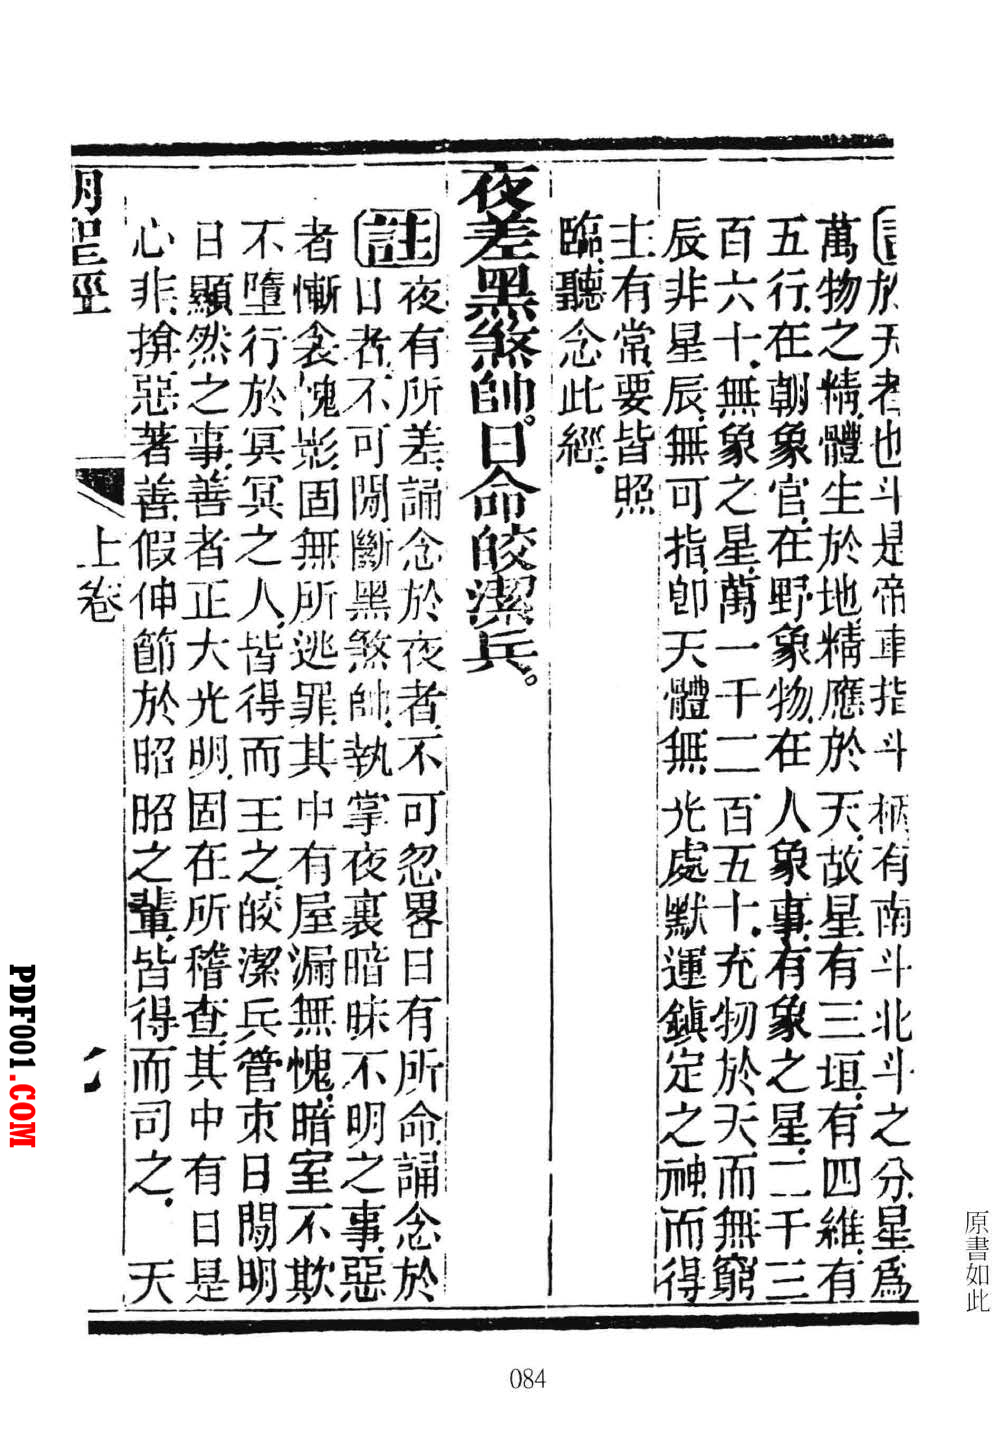 於天者也斗是帝車指斗柄有南斗北斗之分.星爲
萬物之精.體生於地.精應於天.故星有三垣.有四維.有
五行.在朝象官.在野象物.在人象事.有象之星.二千三
百六十.無象之星.萬一千二百五十.充物於天而無窮
辰非星辰.無可指.卽天體無光處.默運鎮定之神.而得
士有常.要皆照
臨.聽念此經.
夜差黑煞帥。日命皎潔兵。
註 夜有所差.誦念於夜者.不可忽畧.日有所命.誦念於
日者.不可閒斷.黑煞帥.執掌夜裏暗昧不明之事.惡
者慚衾愧影.固無所逃罪.其中有屋漏無愧.暗室不欺
不墮行於冥冥之人.皆得而王之.皎潔兵管束日閒明
日顯然之事.善者正大光明.固在所稽查.其中有日是
心非.揜惡著善.假伸節於昭昭之輩.皆得而司之. 天
明聖經
上卷
原書如此
084
PDF001.COM